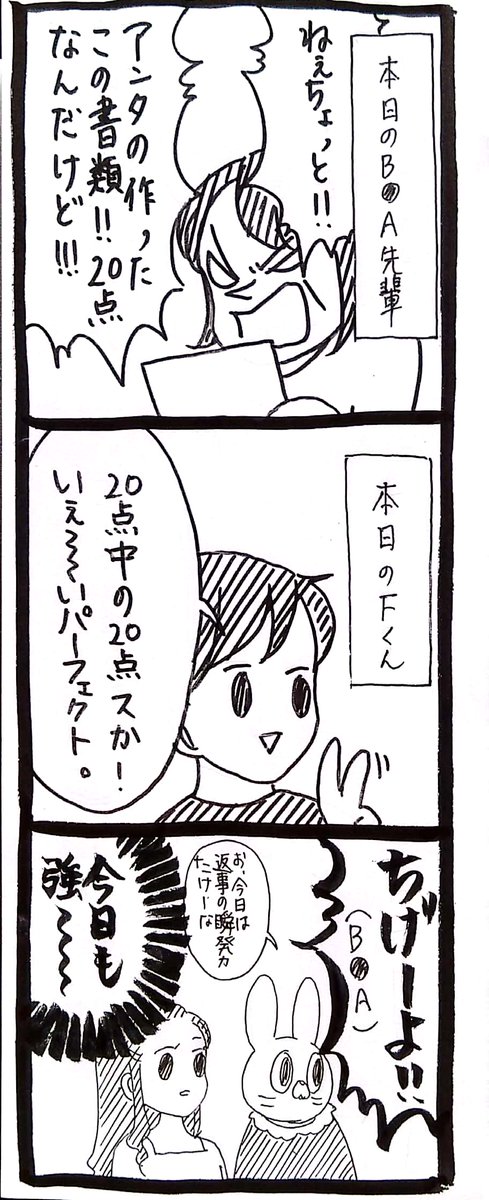 本日のB●A先輩
ねぇちょっと!!
アンタの作った
この書類!!20点
なんだけど!!!
本日のFくん
20点中の20点スか!
いぇ〜〜いパーフェクト。
ちげーよ!!
(B●A)
お、今日は
返事の瞬発力
たけーな
今日も
強〜〜